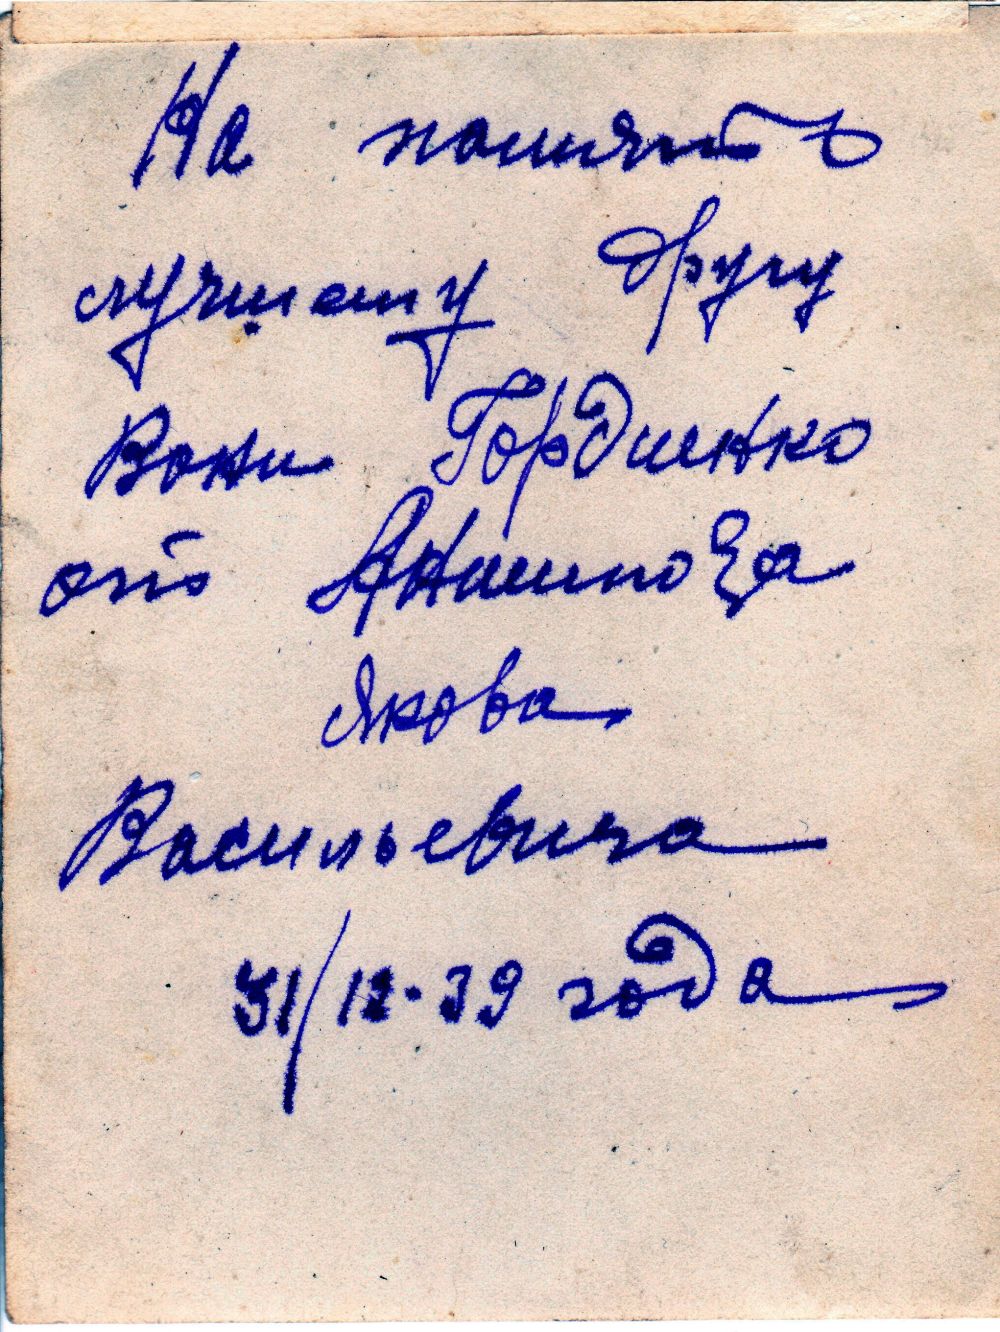 На память
лучшему другу
Вани Гордиенко
от
Якова
Васильевича
31/12-39 года